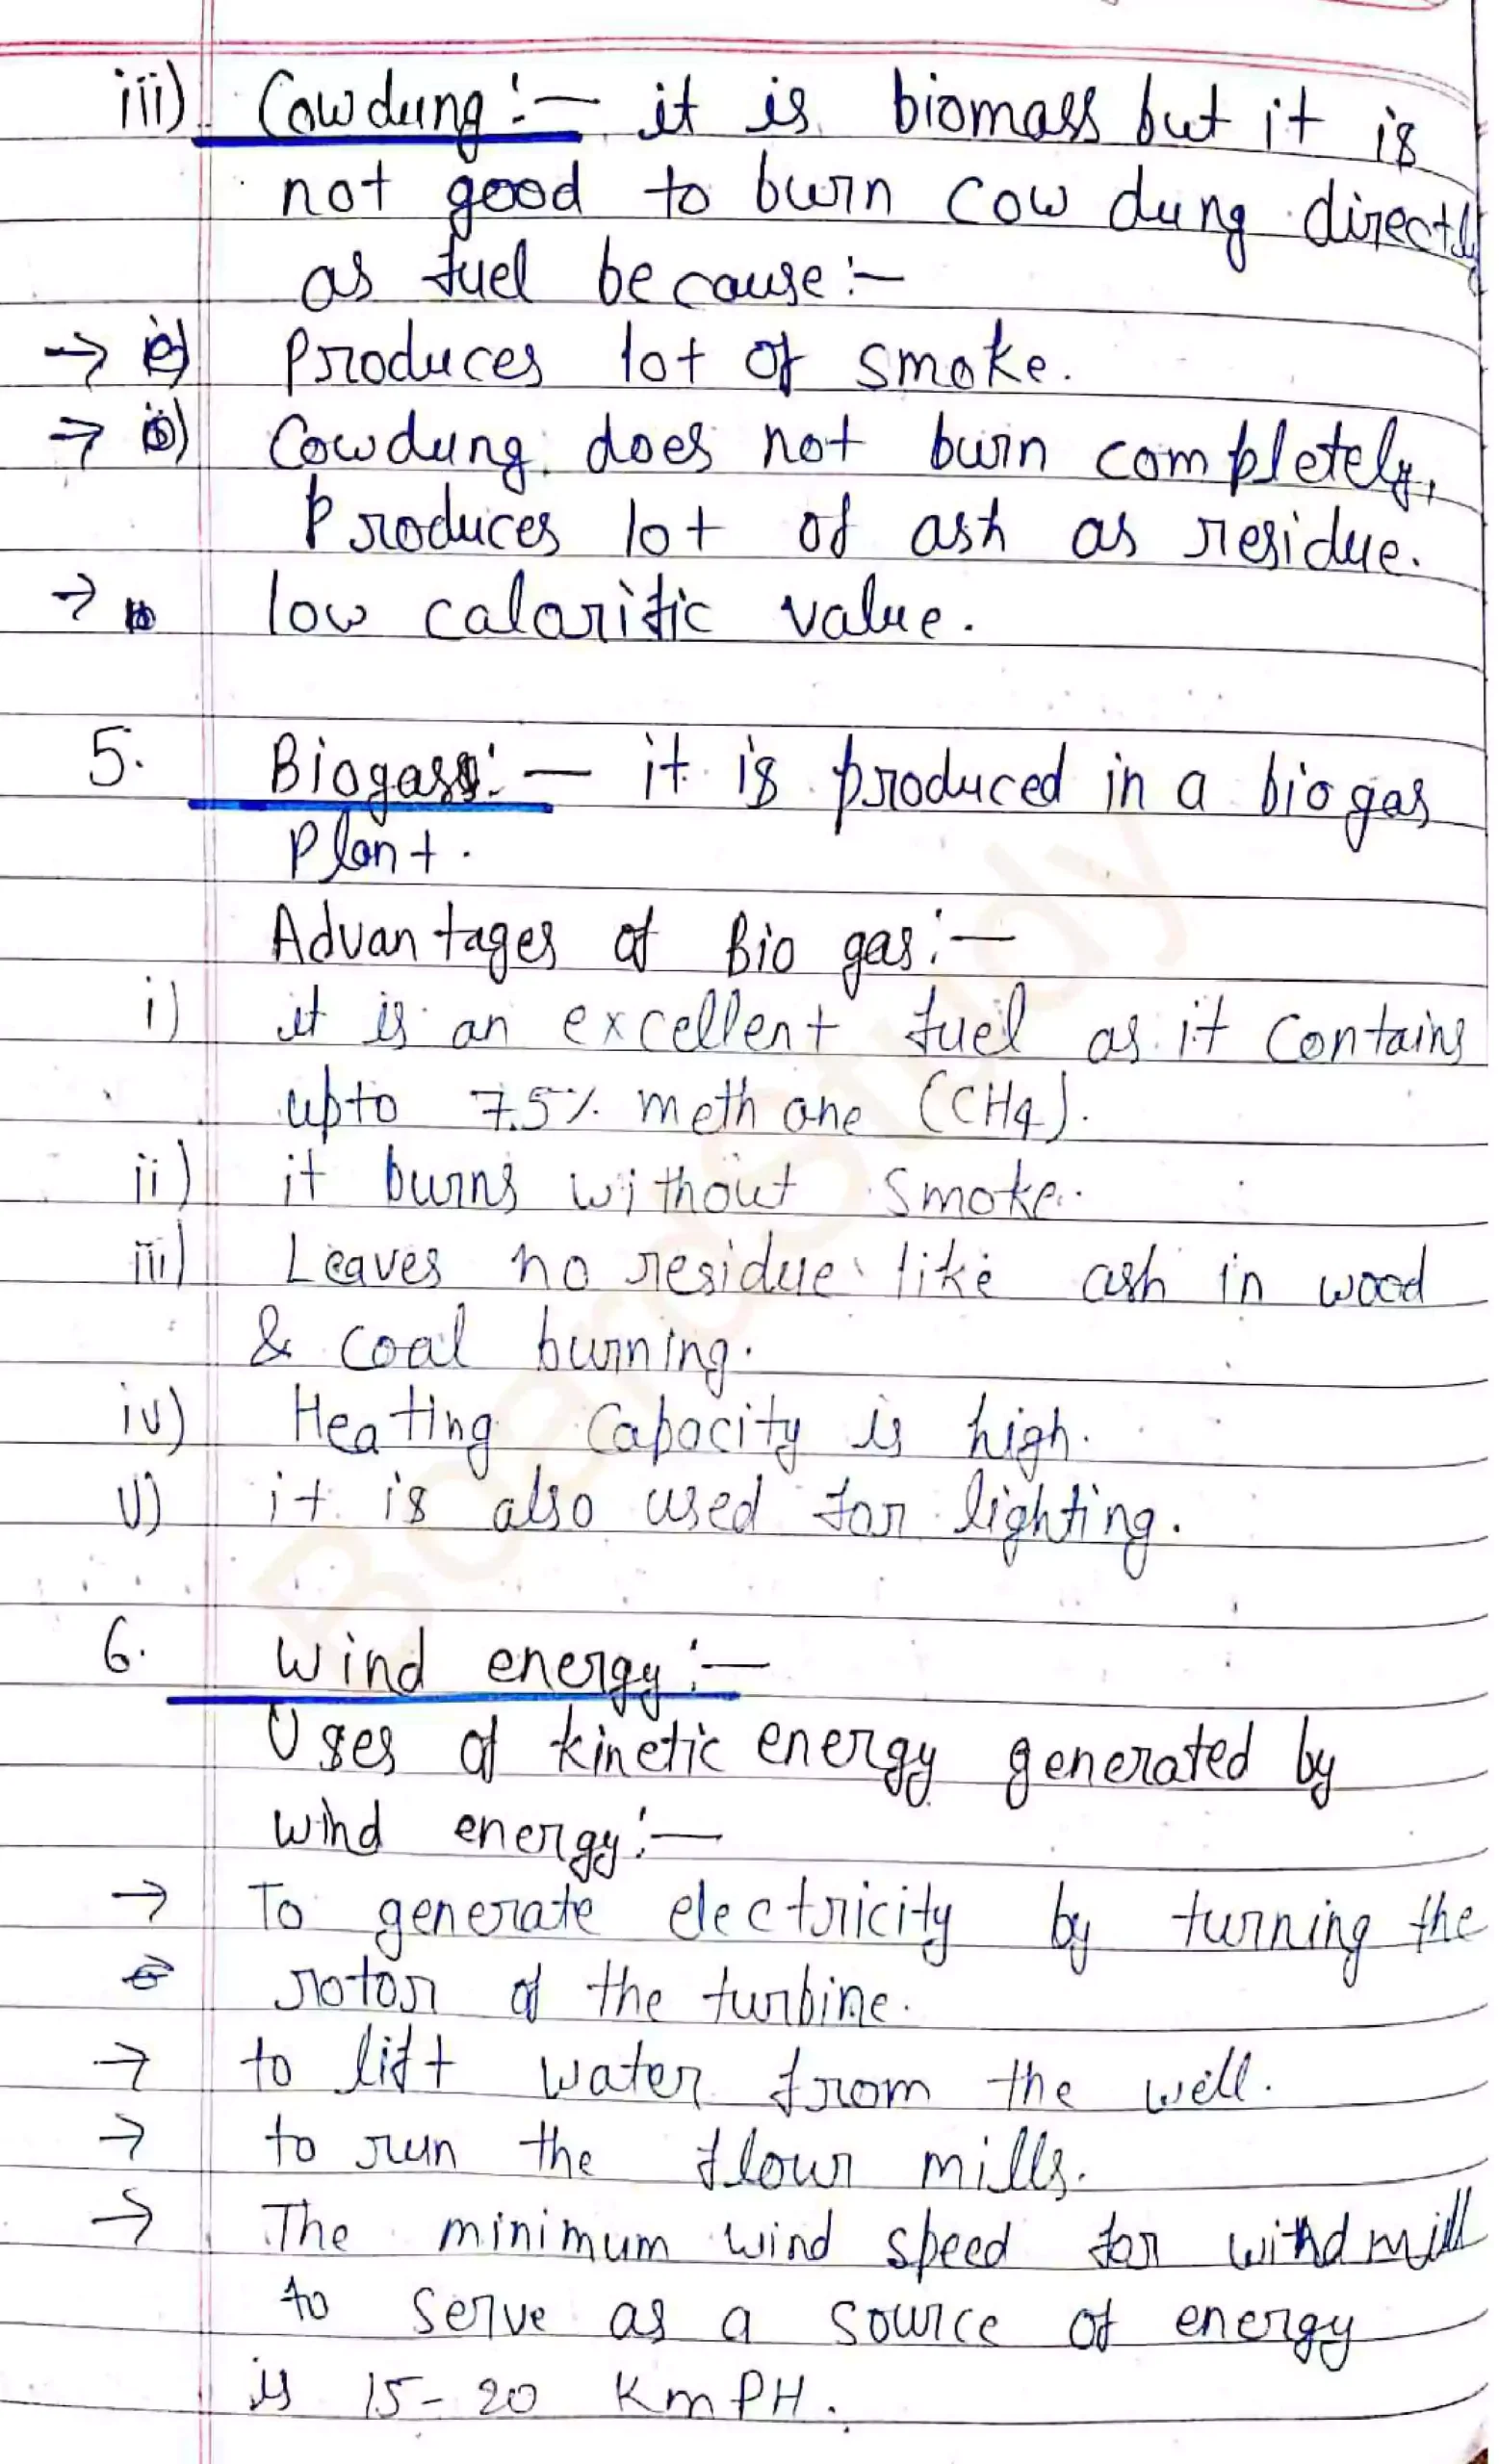 iii) Cowdung:- it is biomass but it is
not good to burn cow dung directly
as fuel because:-
→ Produces lot of smoke.
→ Cowdung does not burn completely,
Produces lot of ash as residue.
→ low calorific value.
5. Biogass:- it is produced in a biogas
Plant.
Advantages of Bio gas:-
i) it is an excellent fuel as it contains
upto 75% methane (CH4).
ii) it burns without smoke.
iii) Leaves no residue like ash in wood
& coal burning.
iv) Heating Capacity is high.
v) it is also used for lighting.
6. Wind energy:-
Uses of kinetic energy generated by
wind energy:-
→ To generate electricity by turning the
rotor of the turbine.
→ to lift water from the well.
→ to run the flour mills.
→ The minimum wind speed for windmill
to serve as a source of energy
is 15-20 KmPH.
BoardStudy